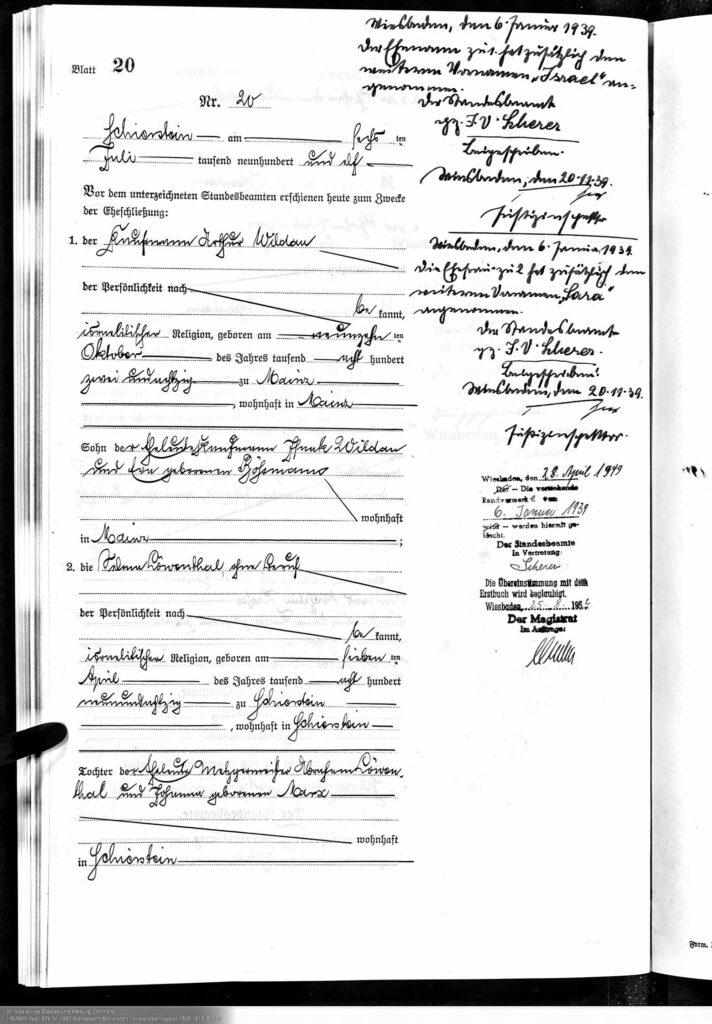 Blatt 20
Nr. 20
Schierstein am sechs ten
Juli tausend neunhundert und elf
Vor dem unterzeichneten Standesbeamten erschienen heute zum Zwecke
der Eheschließung:
1. der Kaufmann Arthur Wildau
der Persönlichkeit nach
be kannt,
israelitischer Religion, geboren am neunzehn ten
Oktober des Jahres tausend acht hundert
zwei und achtzig zu Mainz
, wohnhaft in Mainz
Sohn der Eheleute Kaufmann Wildau
und geborenen
wohnhaft
in Mainz ;
2. die Selma Löwenthal, ohne Beruf
der Persönlichkeit nach
be kannt,
israelitischer Religion, geboren am sieben ten
April des Jahres tausend acht hundert
neunundachtzig zu Schierstein
, wohnhaft in Schierstein
Tochter der Eheleute Metzgermeister Abraham Löwen-
thal und Johanna geborenen Marx
wohnhaft
in Schierstein
Wiesbaden, den 6. Januar 1939.
Der Ehemann zu 1. hat zusätzlich den
weiteren Vornamen „Israel" an-
genommen.
Der Standesbeamte
gz. I. V. Scherer
Beigeschrieben.
Wiesbaden, den 20.12.39.
Justizinspektor
Wiesbaden, den 6. Januar 1939.
Die Ehefrau zu 2 hat zusätzlich den
weiteren Vornamen „Sara"
angenommen.
Der Standesbeamte
gz. I. V. Scherer.
Beigeschrieben!
Wiesbaden, den 20.12.39.
Justizinspektor.
Wiesbaden, den 28. April 1949
Die vorstehende
Randvermerk e vom
6. Januar 1939
werden hiermit ge-
löscht.
Der Standesbeamte
In Vertretung:
Scherer
Die Übereinstimmung mit dem
Erstbuch wird beglaubigt.
Wiesbaden, 25. 8. 195
Der Magistrat
Im Auftrage:
Form.
© Hessisches Staatsarchiv Marburg, Germany